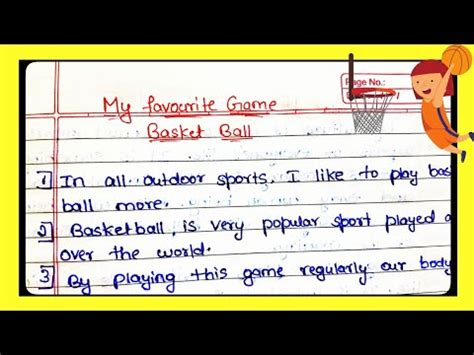 Page No.:
My favourite Game
Basket Ball
1) In all outdoor sports, I like to play bas
ball more.
2) Basketball, is very popular sport played a
over the world.
3) By playing this game regularly our body